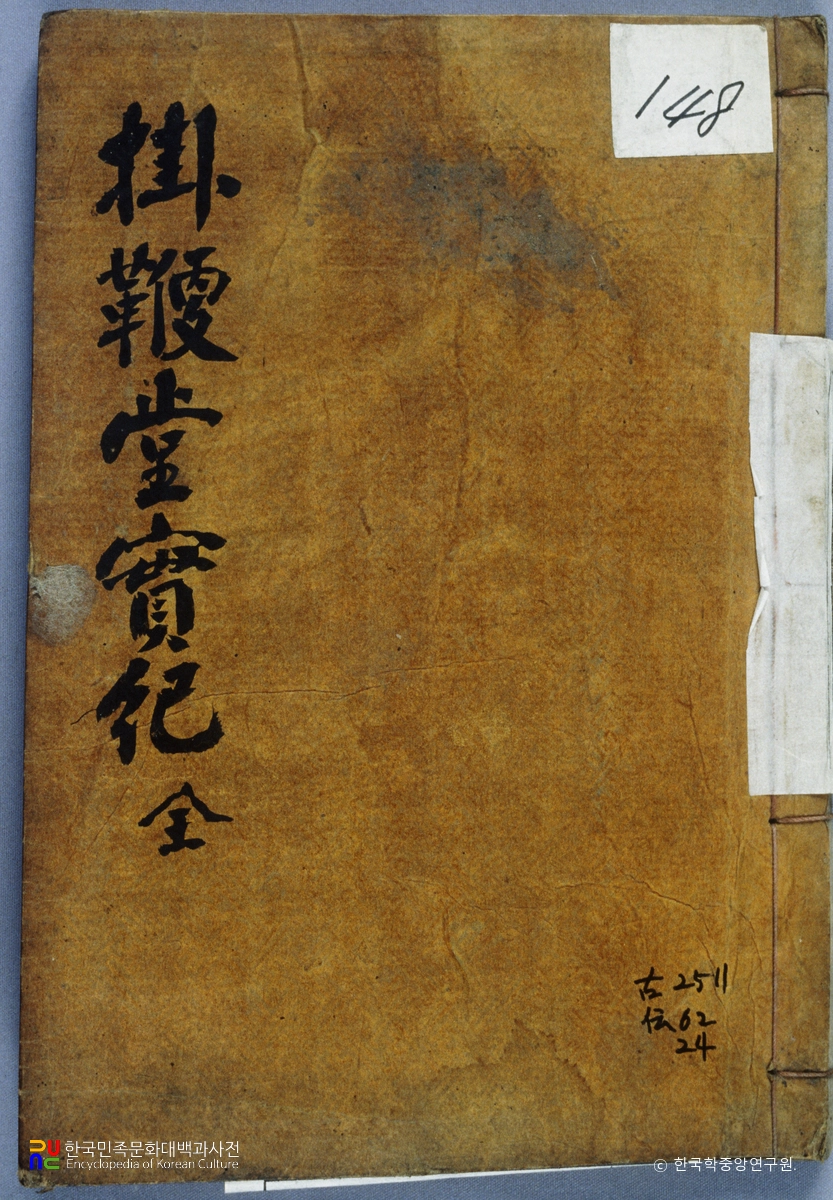 148
掛鞭堂實紀 全
古 2511
伝 62
24
한국민족문화대백과사전
Encyclopedia of Korean Culture
ⓒ 한국학중앙연구원.